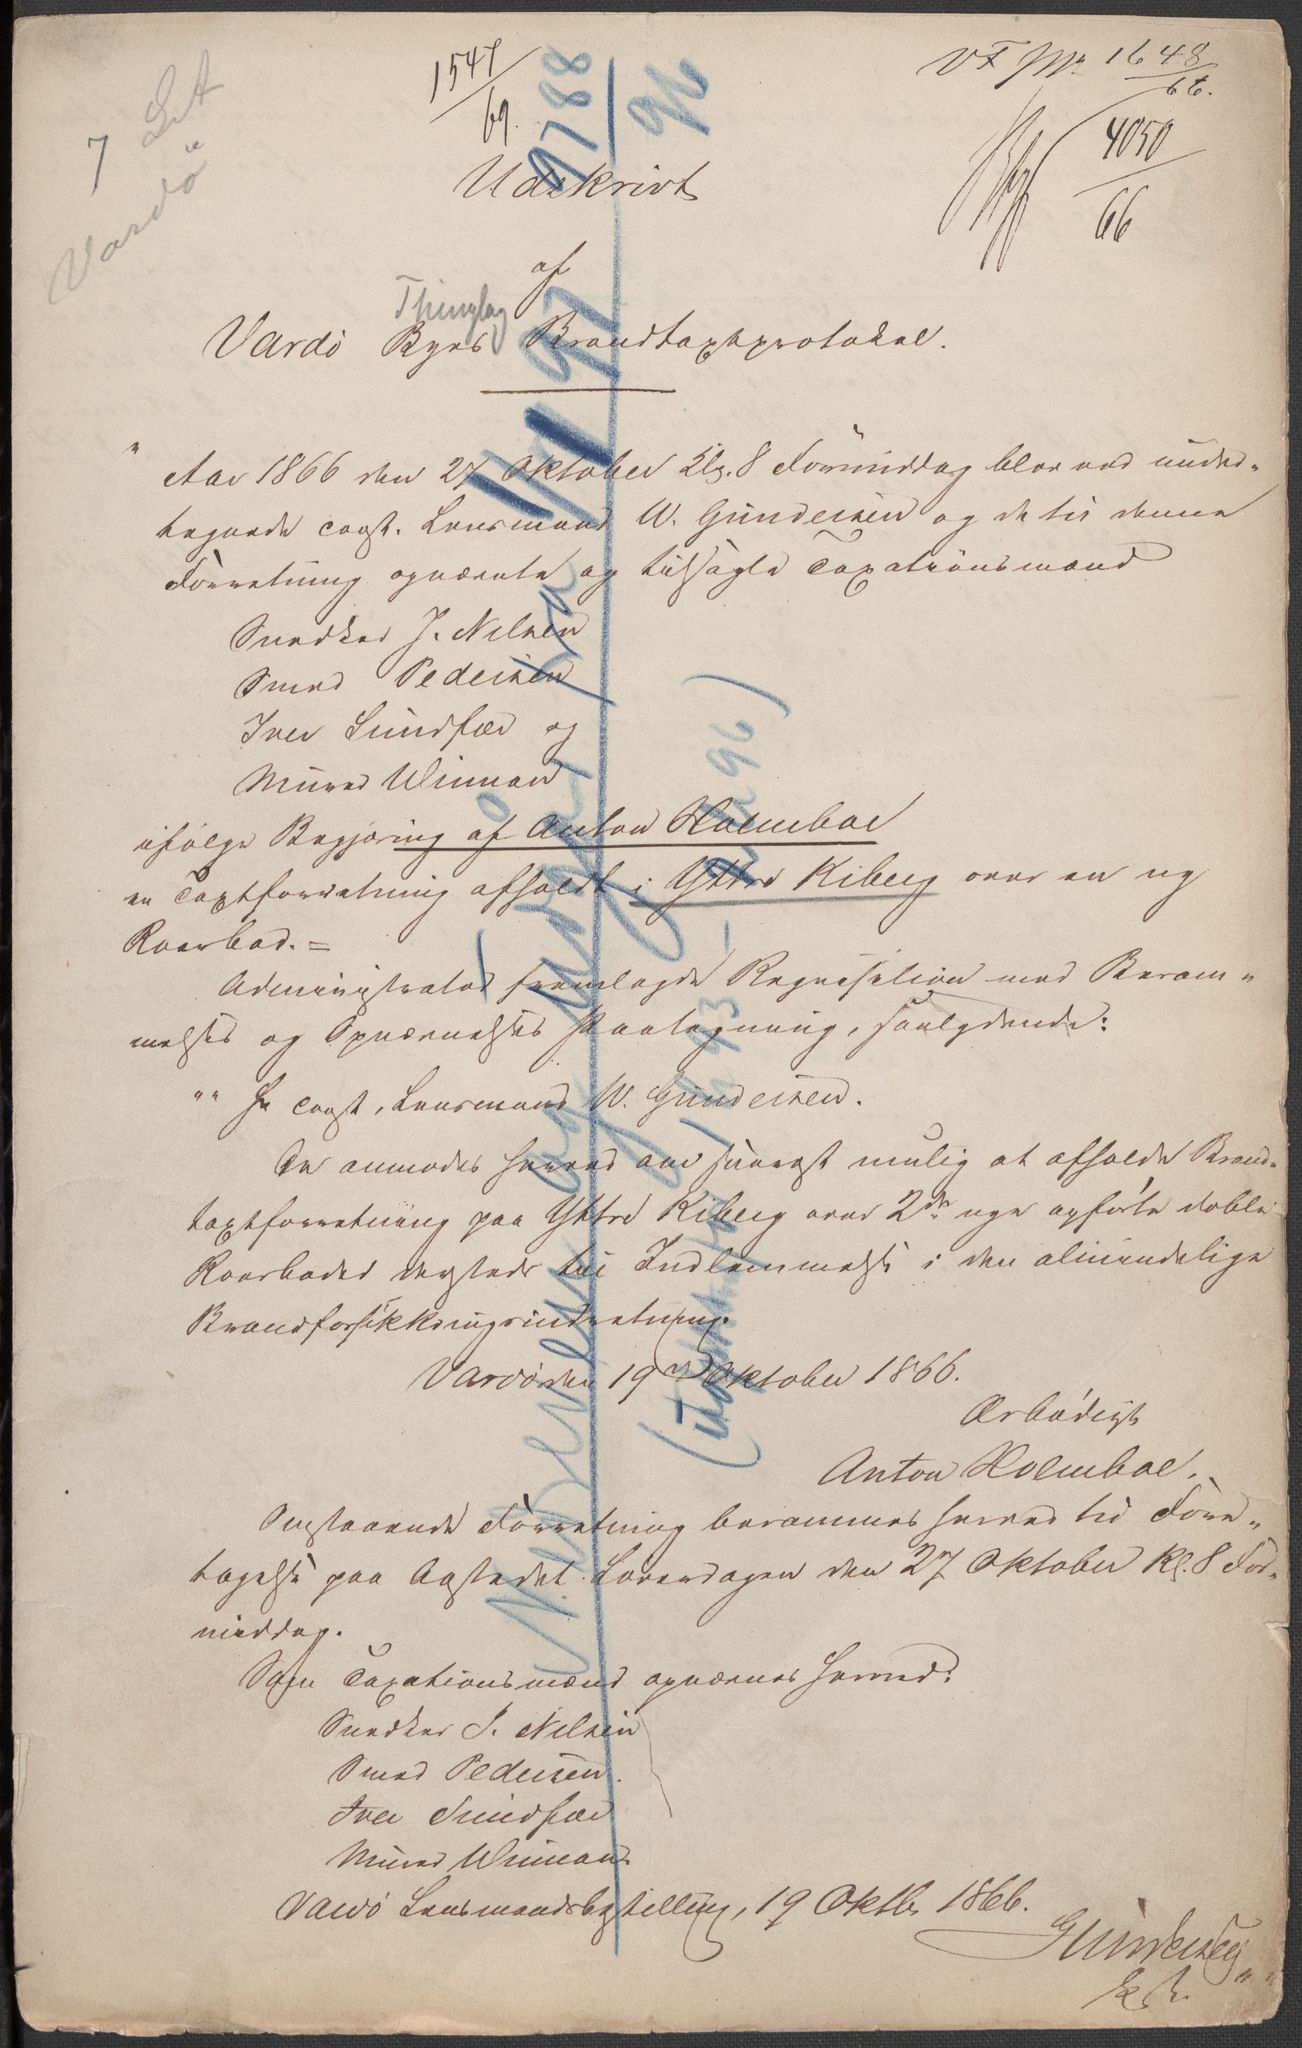 7 Lit
Vardö
1547/69.
VF No 1648/66.
4050/66
9788/96
Udskrivt
af
Thinglag
Vardö Byes Brandtaxtprotokol.
"Aar 1866 den 27 Oktober Kl. 8 Formiddag blev ved under-
tegnede const. Lensmand W. Gundersen og de til denne
Forretning opnævnte og tilsagte Taxationsmænd
Snedker J. Nilsen
Smed Pedersen
Iver Lundfær og
Murer Winman
ifølge Begjæring af Anton Holmboe
en Taxtforretning afholdt i Yttre Kiberg over en ny
Roerbod. =
Administrator fremlagde Reqvisition med Beram-
melses og Opnævnelses Paategning, saalydende:
"" Hr const. Lensmand W. Gundersen.
De anmodes herved om snarest mulig at afholde Brand-
taxtforretning paa Yttre Kiberg over 2de nye opførte doble
Roerboder dersteds til Indlemmelse i den almindelige
Brandforsikkringsindretning.
Vardö den 19de Oktober 1866.
Ærbødigst
Anton Holmboe.
Omstaaende Forretning berammes herved til Fore-
tagelse paa Aastedet Løverdagen den 27 Oktober Kl. 8 For-
middag.
Som Taxationsmænd opnævnes herved:
Snedker J. Nilsen
Smed Pedersen.
Iver Lundfær
Murer Winman
Vardö Lensmandsbestilling, 19 Oktbr 1866.
Gundersen
kst. ""